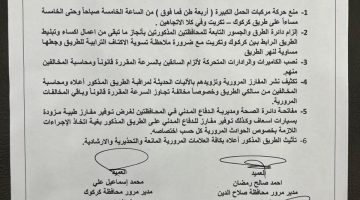 ١- منع حركة مركبات الحمل الكبيرة ( أربعة طن فما فوق ) من الساعة الخامسة صباحاً وحتى الخامسة
مساءاً على طريق كركوك – تكريت وفي كلا الاتجاهين .
٢- إلزام دائرة الطرق والجسور التابعة للمحافظتين المذكورتين بأنجاز ما تبقى من اعمال إكساء وتبليط
الطريق الرابط بين كركوك وتكريت مع ضرورة ملاحظة تسوية الاكتاف الترابية للطريق وجعلها
بمساواة نهر الطريق
٣- نصب الكاميرات والرادارات المتحركة لألزام السائقين بالسرعة المقررة قانوناً ومحاسبة المخالفين
منهم .
٤- تكثيف نشر المفارز المرورية وتزويدهم بالآليات الحديثة لمراقبة الطريق المذكور أعلاه ومحاسبة
المخالفين من سالكي الطريق وخصوصاً مخالفة تجاوز السرعة المقررة قانوناً وباقي المخالفات
المرورية .
٥- مفاتحة دائرة الصحة ومديرية الدفاع المدني في المحافظتين لغرض توفير مفارز طبية مزودة
بسيارات اسعاف وكذلك توفير مفارز للدفاع المدني على الطريق المذكور بغية اتخاذ الإجراءات
اللازمة بخصوص الحوادث المرورية كل حسب اختصاصه .
٦- تأثيث الطريق المذكور أعلاه بكافة العلامات المرورية والتحذيرية والارشادية .
العميد
احمد صالح رمضان
مدير مرور محافظة صلاح الدين
العميد
محمد إسماعيل علي
مدير مرور محافظة كركوك